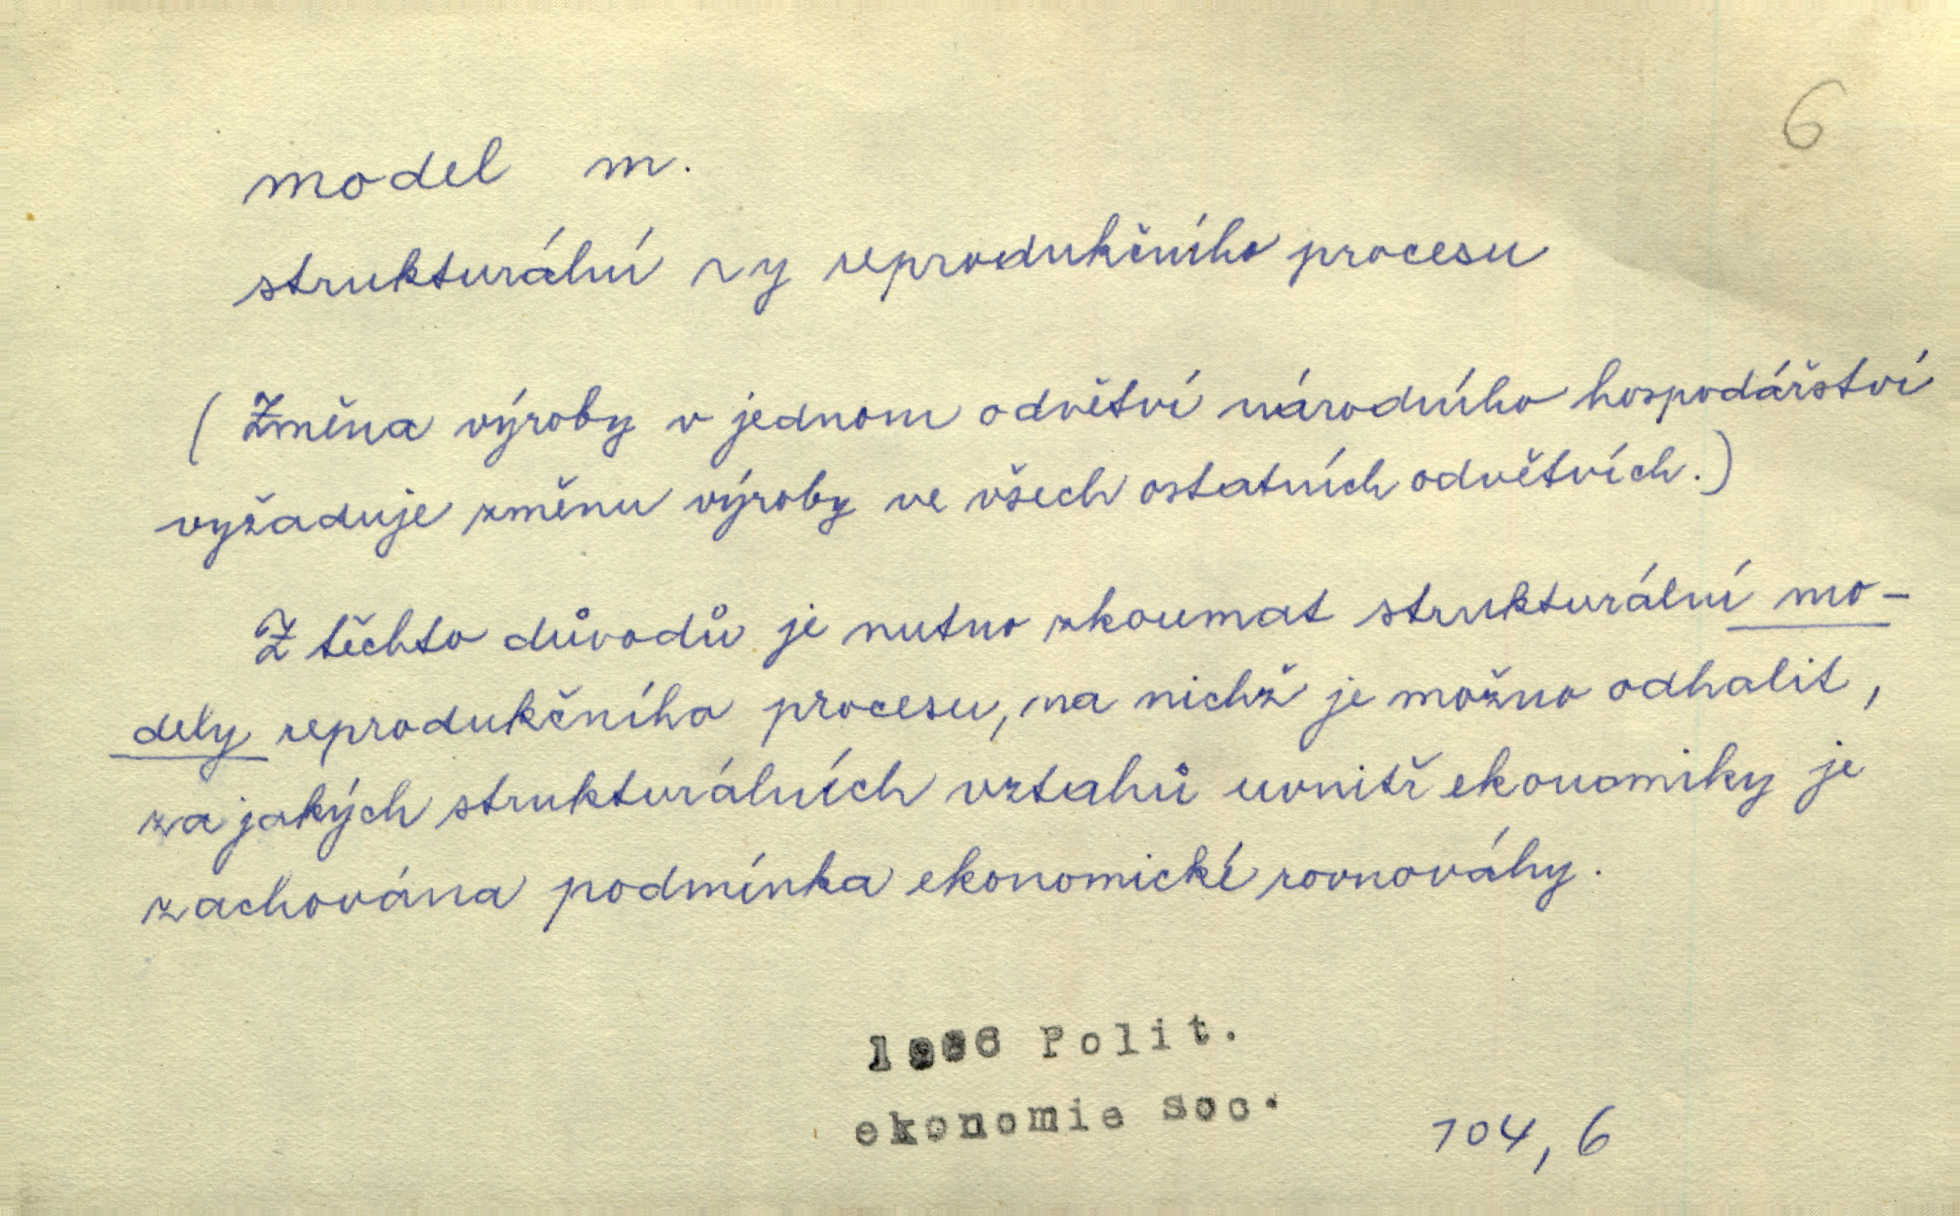 6
model m.
strukturální ~y reprodukčního procesu
(Změna výroby v jednom odvětví národního hospodářství
vyžaduje změnu výroby ve všech ostatních odvětvích.)
Z těchto důvodů je nutno zkoumat strukturální mo-
dely reprodukčního procesu, na nichž je možno odhalit,
za jakých strukturálních vztahů uvnitř ekonomiky je
zachována podmínka ekonomické rovnováhy.
1966 Polit.
ekonomie soc.
104, 6